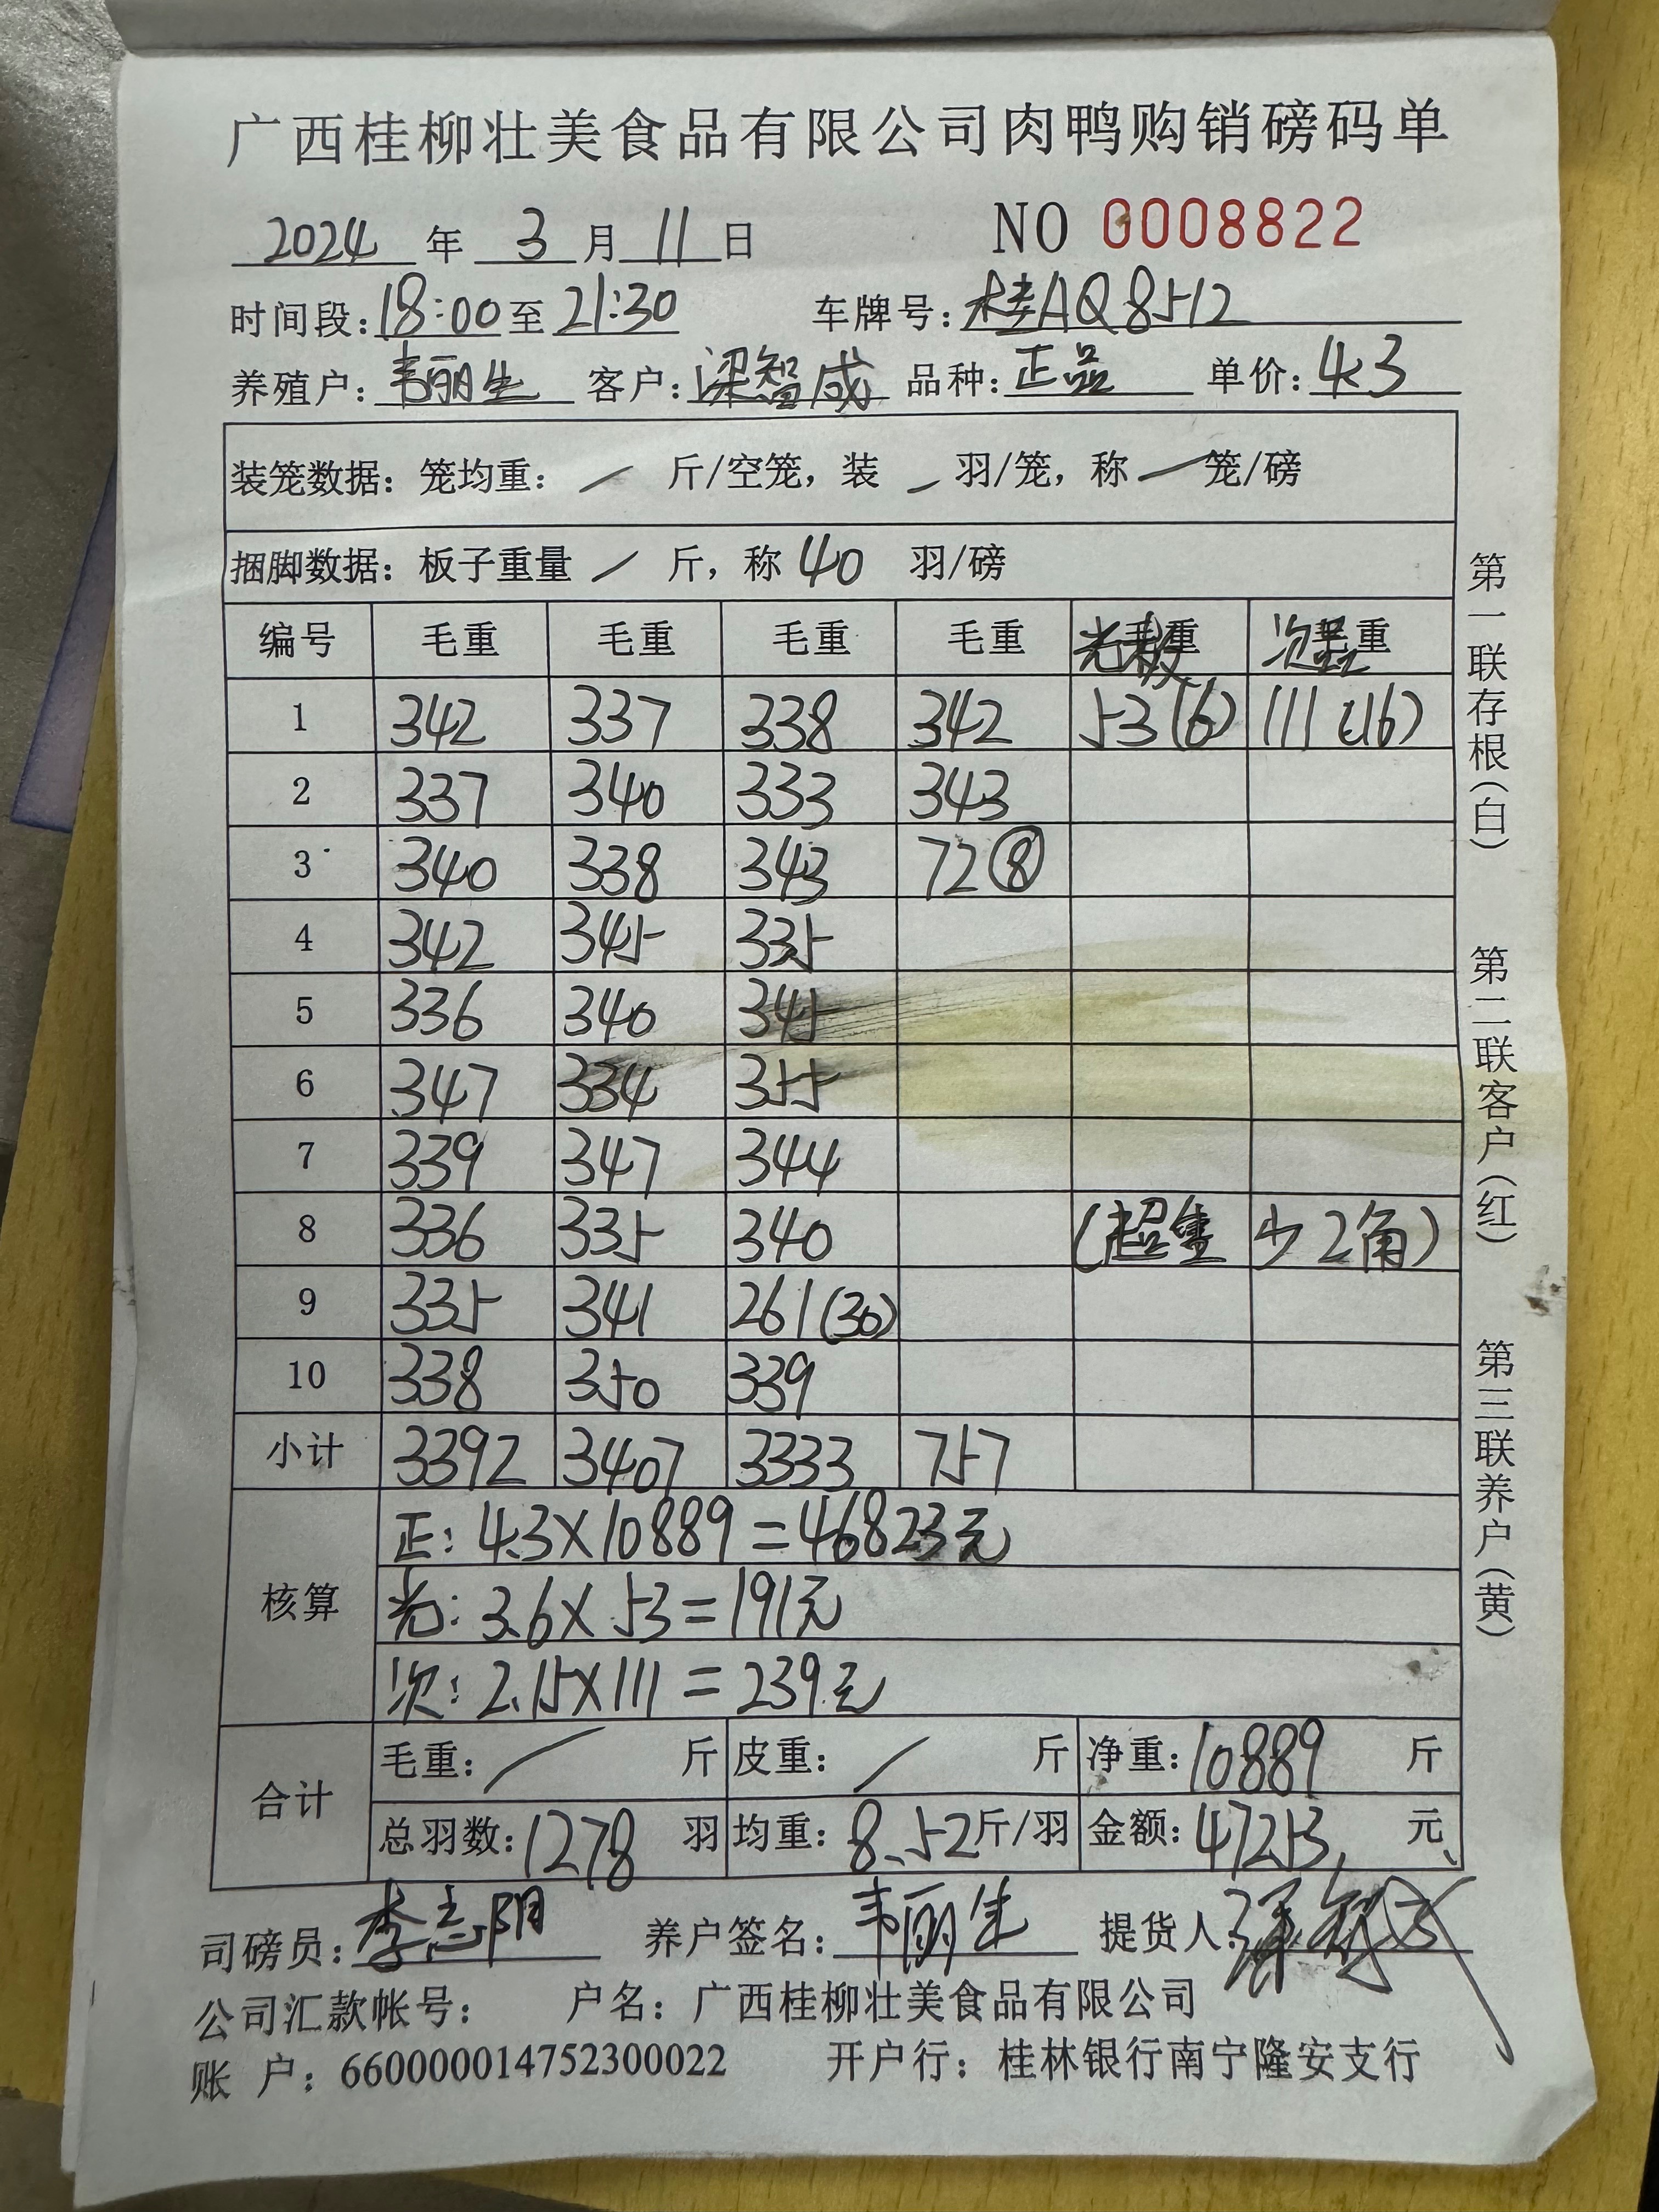 广西桂柳壮美食品有限公司肉鸭购销磅码单
2024 年 3 月 11 日 NO 0008822
时间段:18:00至21:30 车牌号:桂AQ8512
养殖户:韦丽生 客户:梁智成 品种:正品 单价:4.3
装笼数据：笼均重： / 斤/空笼，装 / 羽/笼，称 / 笼/磅
捆脚数据：板子重量 / 斤，称 40 羽/磅
编号 毛重 毛重 毛重 毛重 光板 次品
1 342 337 338 342 53(6) 111(16)
2 337 340 333 343
3 340 338 343 72⑧
4 342 345 335
5 336 340 345
6 347 334 355
7 339 347 344
8 336 335 340 (超重 少2角)
9 335 341 261(30)
10 338 350 339
小计 3392 3407 3333 757
核算
正: 4.3×10889=46823元
光: 3.6×53=191元
次: 2.15×111=239元
合计
毛重: / 斤 皮重: / 斤 净重:10889 斤
总羽数:1278 羽 均重:8.52斤/羽 金额:47253 元
司磅员:李志阴 养户签名:韦丽生 提货人:
公司汇款帐号： 户名：广西桂柳壮美食品有限公司
账 户：660000014752300022 开户行：桂林银行南宁隆安支行
第一联存根(白)
第二联客户(红)
第三联养户(黄)